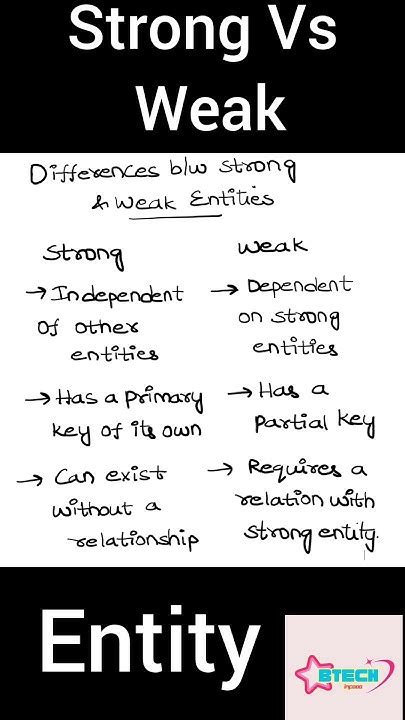 Strong Vs
Weak
Differences b/w Strong
& Weak Entities
Strong
→ Independent
of other
entities
→ Has a primary
key of its own
→ Can exist
without a
relationship
Weak
→ Dependent
on strong
entities
→ Has a
Partial key
→ Requires a
relation with
strong entity.
Entity
BTECH